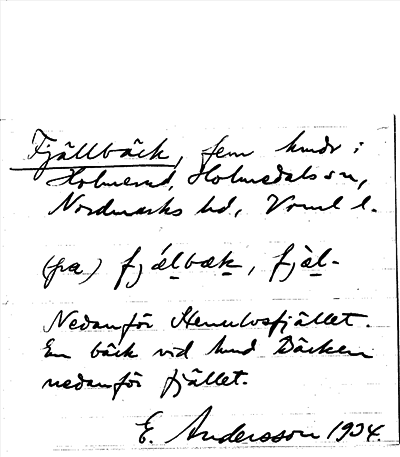 Fjällbäck, fem hmdr i
Holmerud, Holmedals sn,
Nordmarks hd, Vrml l.
(på) fjälbæk, fjäl-
Nedanför Hemulvsfjället.
En bäck vid hmd Bäcken
nedanför fjället.
E. Andersson 1934.